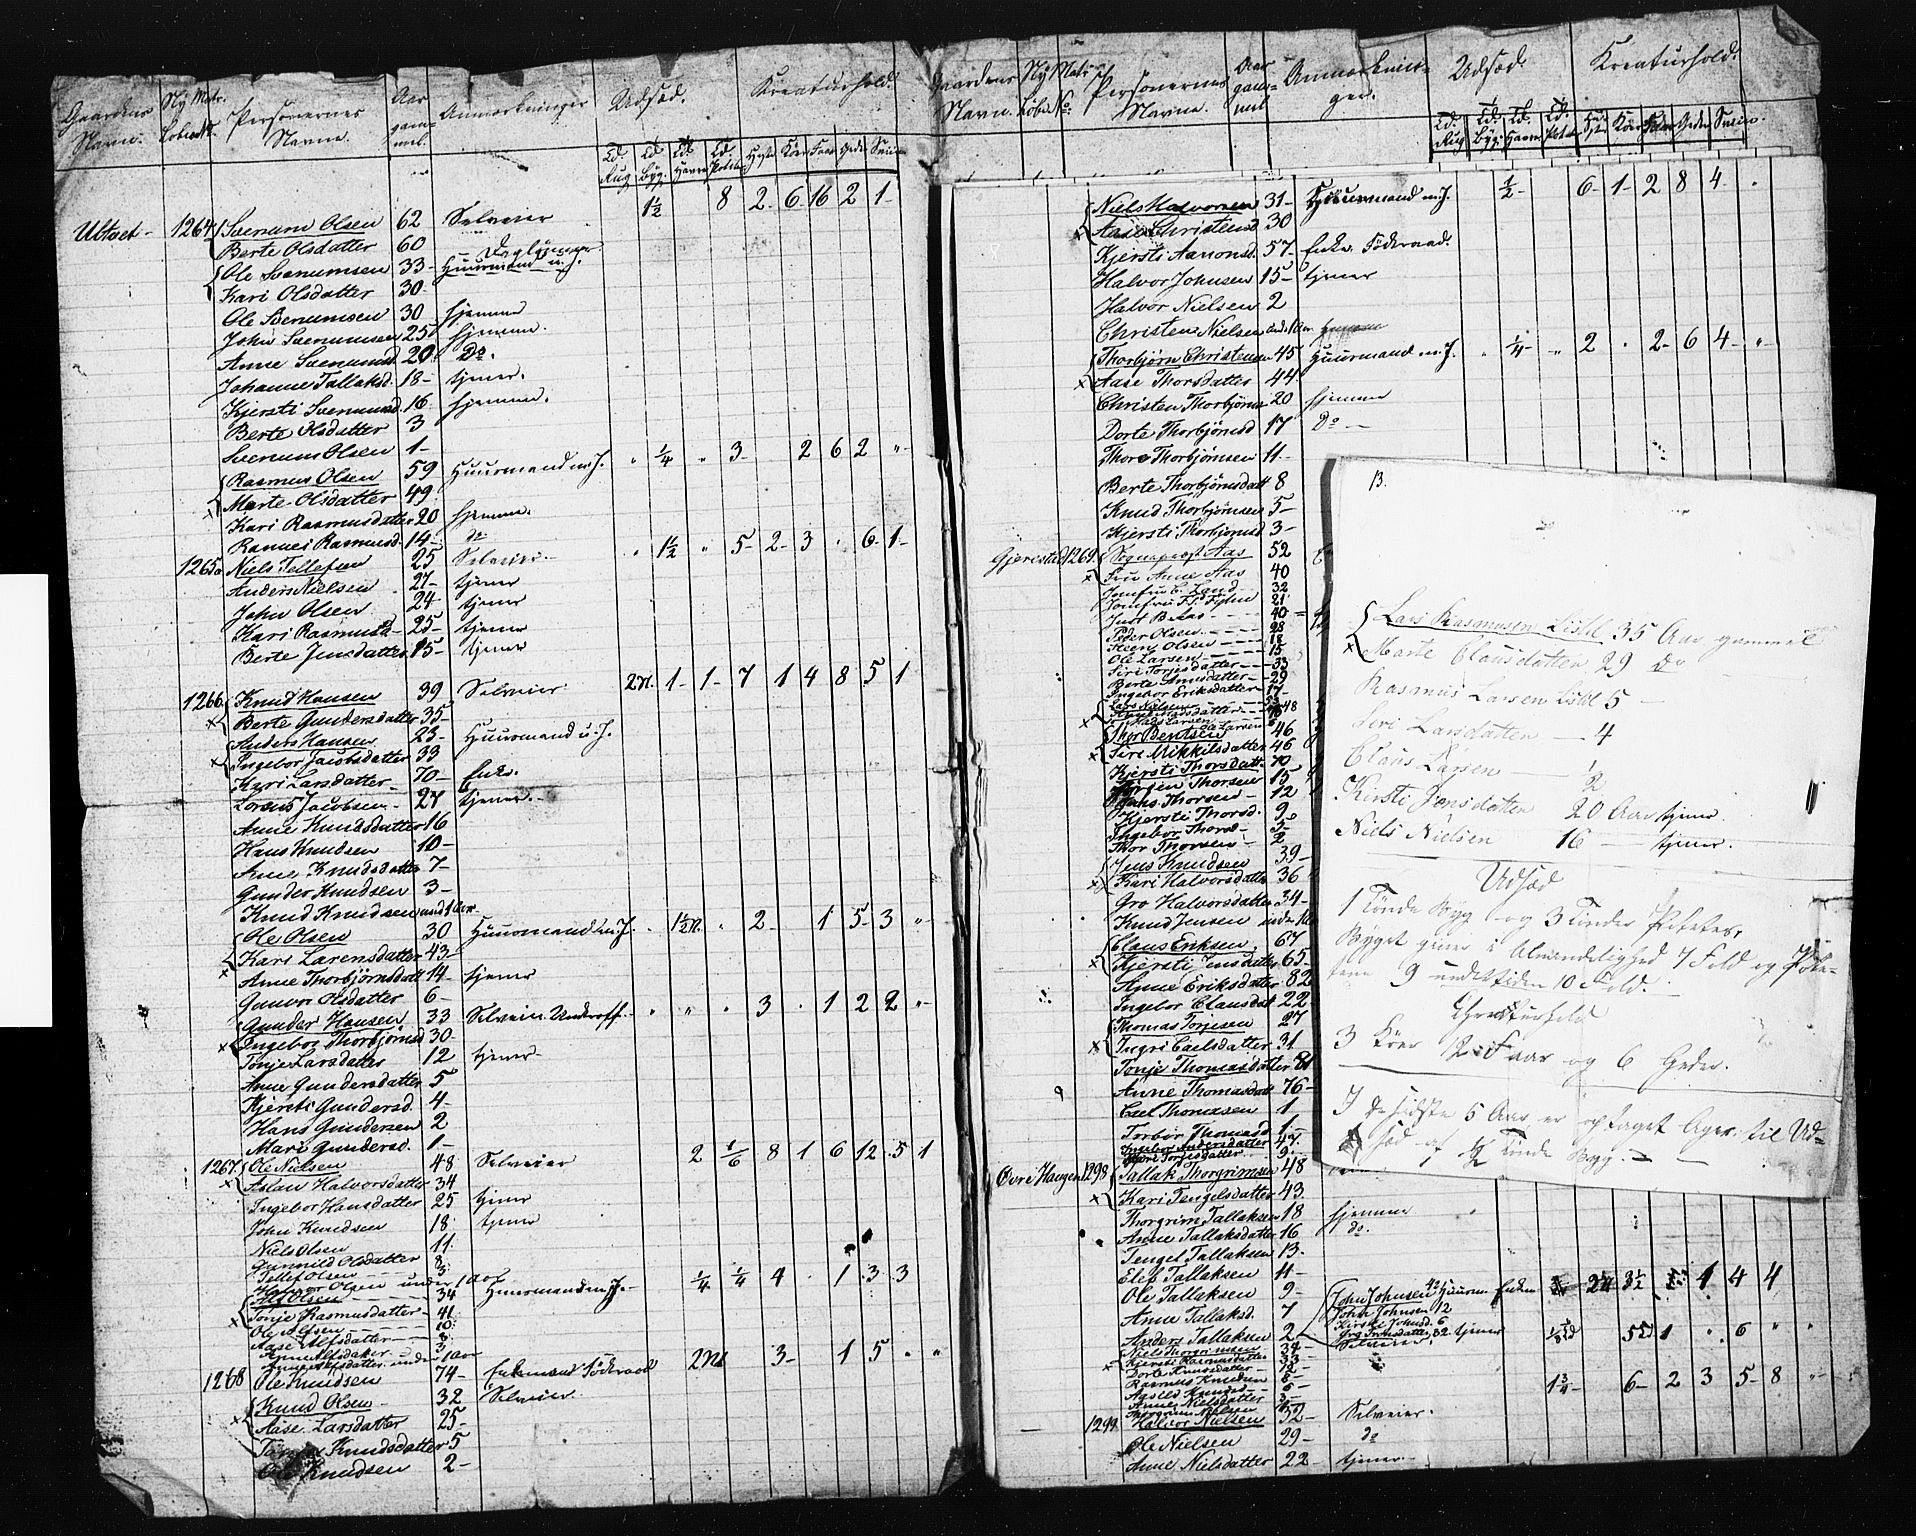 Gaardens Navn. Ny Matr. Løbe No. Personernes Navne. Aar gammel. Anmærkninger Udsæd. Kreaturhold.
Td. Rug Td. Byg. Td. Havre Td. Potet. Heste Køer Faar Geder Sviin
1½ 8 2 6 16 2 1
Ulltvet 1264 Svenum Olsen 62 Selveier
Berte Olsdatter 60
Ole Svenumsen 33 Daglønner Huusmand u. J.
Kari Olsdatter 30
Ole Svenumsen 30 hjemme
John Svenumsen 25 hjemme.
Anne Svenumsd. 20 Do.
Johanne Tallaksd. 18 tjener.
Kjersti Svenumsd. 16 hjemme.
Berte Olsdatter 3
Svenum Olsen 1
Rasmus Olsen 59 Huusmand m. J. " ¼ " 3 2 6 2 "
Marte Olsdatter 49
Kari Rasmusdatter 20 hjemme.
Rannei Rasmusd. 14 do
1265 Niels Tellefsen 25 Selveier " 1½ " 5 2 3 " 6 1
Anders Nielsen 27 tjener
John Olsen 24 tjener
Kari Rasmusd. 25 tjener
Berte Jensdatter 15 tjener
1266 Knud Hansen 39 Selveier 1 1 7 1 4 8 5 1
Berte Gundersdatter 35
Anders Hansen 23 Huusmand u. J.
Ingebor Jacobsdatter 33
Kari Larsdatter 70 Enke.
Lorens Jacobsen 27 tjener.
Anne Knudsdatter 16
Hans Knudsen 10
Anne Knudsdatter 7
Gunder Knudsen 3
Knud Knudsen und. 1 Aar
Ole Olsen 30 Huusmand m. J. " 1½ " 2 1 5 3 "
Kari Larensdatter 43
Anne Thorbjørnsdatt 14 tjener
Gunvor Olsdatter 6
Gunder Hansen 33 Selveier Underoff. " " " 3 " 1 2 2 "
Ingebor Thorbjørnsd 30
Tonje Larsdatter 12 tjener
Anne Gundersdatter 5
Kjersti Gundersd. 4
Hans Gundersen 2
Mari Gundersd. 1
1267 Ole Nielsen 48 Selveier 2 1/6 8 1 6 12 5 1
Aslau Halvorsdatter 34
Ingebor Hansdatter 25 tjener
John Knudsen 18 tjener
Niels Olsen 11
Gunnild Olsdatter 8
Tellef Olsen 3
Halvor Olsen under 1 Aar
Alf Olsen 34 Huusmand m. J. ¼ ¼ 4 " 1 3 3
Tonje Rasmusdatter 41
Ole Alfsen 10
Aase Alfsdatter 8
Anne Alfsdatter 3
Anne Alfsdatter under 1 Aar
1268 Ole Knudsen 74 Enkemand Føderaad 3 1 5 " "
Knud Olsen 32 Selveier
Aase Larsdatter 25
Knudsdatter 5
Ole Knudsen 2
Gaardens Navn. Ny Matr. Løbe No. Personernes Navne. Aar gammel Anmærkninger. Udsæd. Kreaturhold.
Td. Rug Td. Byg. Td. Havre Td. Potet. Heste Køer Faar Geder Sviin.
Niels Halvorsen 31 Huusmand m. J. ½ 6 1 2 8 4 "
Aase Christensd 30
Kjersti Aanonsd. 57 Enke Føderaad.
Halvor Johnsen 15 tjener
Halvor Nielsen 2
Christen Nielsen und. 1 Aar
Thorbjørn Christensen 45 Huusmand m. J. " ¼ " 2 " 2 6 4 "
Aase Thorsdatter 44
Christen Thorbjørns 20 hjemme
Dorte Thorbjørnsd 17 Do
Thore Thorbjørnsen 11
Berte Thorbjørnsdatt 8
Knud Thorbjørnsen 5
Kjersti Thorbjørnsd 3
Gjerestad 1269 Sognepræst Aas 52
Fru Anne Aas 40
Jomfru C. Lund 32
Jomfru 21
Just B. Aas 40
Peder Olsen 28
Steen Olsen 18
Ole Larsen 15
Siri Torjesdatter 33
Berte Annesdatter 29
Ingebor Eriksdatter 17
Lars Nielsen
Thor Bentsen 46
Siri Mikkilsdatter 46
Kjersti Thorsdatt. 70
Torjen Thorsen 15
Hans Thorsen 12
Kjersti Thorsd. 9
Ingebor Thorsd 5
Thor Thorsen 2
Jens Knudsen 39
Kari Halvorsdatter 36
Gro Halvorsdatter 34
Knud Jensen under 1 Aar
Claus Eriksen 67
Kjersti Jensdatter 65
Anne Eriksdatter 82
Ingebor Clausdatt 22
Thomas Torjesen 27
Ingri Carlsdatter 31
Tonje Thomasdatter 81
Anne Thomasdatt 76
Carl Thomasen 1
Torbor Thomasd 1
Ingebor Andersdatter 47
Kari Torjesdatter 9
Øvre Haugen 1298 Tallak Thorgrimsen 48
Kari Tengelsdatter 43
Thorgrim Tallaksen 18 hjemme
Anne Tallaksdatter 16 do.
Tengel Tallaksen 13
Elef Tallaksen 11
Ole Tallaksen 9
Anne Tallaksd. 7
Anders Tallaksen 2
John Johnsen 42 Huusm. Enkem 3½ 1 4 4
John Johnsen 12
Kirsti Johnsd. 6
Gro Jensdatter 32 tjener
Niels Thorgrimsen 34 Selveier 5 1 " 6 " "
Kjersti Rasmusdatter 33
Dorte Knudsdatter 12
Rasmus Knudsen 8
Aasild Knudsd 6
Anne Nielsdatter 3
Thorgrim Nielsen
1299 Halvor Nielsen 32 Selveier. 1¾ 6 2 3 5 8 "
Ole Nielsen 29 do
Anne Nielsdatter 22 tjener
B.
Lars Rasmusen Lishl 35 Aar gammel
Marte Clausdatter 29 do
Rasmus Larsen Lishl 5
Siri Larsdatter 4
Claus Larsen ½
Kirsti Jensdatter 20 Aar tjener
Niels Nielsen 16 tjener.
Udsæd
1 Tønde Byg og 3 Tønder Potetes,
Byget giver i Almindelighed 7 Fold og Pote-
tene 9 undertiden 10 Fold.
Creaturhold
3 Køer 12 Faar og 6 Geder.
I De sidste 5 Aar er optaget Ager til Ud-
sæd af ½ Tønde Byg.